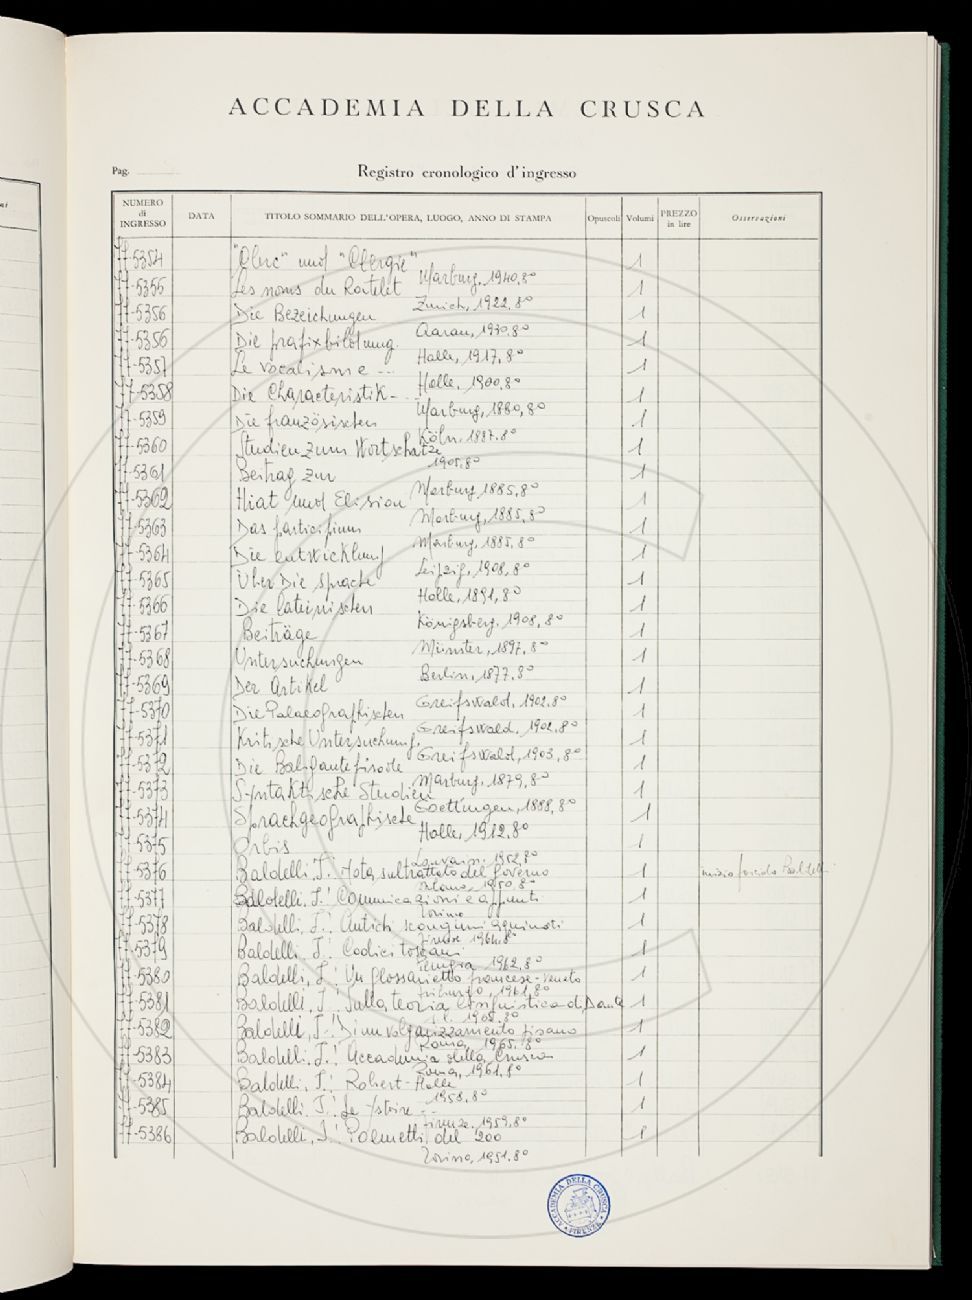 ACCADEMIA DELLA CRUSCA
Pag.
Registro cronologico d'ingresso
NUMERO di INGRESSO DATA TITOLO SOMMARIO DELL'OPERA, LUOGO, ANNO DI STAMPA Opuscoli Volumi PREZZO in lire Osservazioni
5354 "Clerc" und "Clergie" 1
Marburg, 1940, 8°
5355 Les noms du Roitelet 1
Zurich, 1922, 8°
5356 Die Bezeichungen 1
Aarau, 1930, 8°
5356 Die prafixbildung. 1
Halle, 1917, 8°
5357 Le vocalisme ... 1
Halle, 1900, 8°
5358 Die Characteristik... 1
Marburg, 1880, 8°
5359 Die französischen 1
Köln, 1887. 8°
5360 Studien zum Wortschatze 1
1905, 8°
5361 Beitrag zur 1
Marburg 1885, 8°
5362 Hiat und Elision 1
Marburg, 1885, 8°
5363 Das participium 1
Marburg, 1885, 8°
5364 Die entwicklung 1
Leipzig, 1908, 8°
5365 Über Die Sprache 1
Halle, 1891, 8°
5366 Die lateinischen 1
Königsberg, 1908, 8°
5367 Beiträge 1
Münster, 1897, 8°
5368 Untersuchungen 1
Berlin, 1877, 8°
5369 Der Artikel 1
Greifswald, 1902, 8°
5370 Die Palaeographischen 1
Greifswald, 1902, 8°
5371 Kritische Untersuchung. 1
Greifswald, 1903, 8°
5372 Die Baligantepisode 1
Marburg, 1879, 8°
5373 Syntaktische Studien 1
Goettingen, 1888, 8°
5374 Sprachgeografische 1
Halle, 1912, 8°
5375 Orbis 1
Louvain, 1952, 8°
5376 Baldelli, I.: Nota sul trattato del Governo 1
1950, 8°
5377 Baldelli, I.: Comunicazioni e appunti 1
Torino
5378 Baldelli, I.: Antichi 1
Firenze 1964, 8°
5379 Baldelli, I.: Codici toscani 1
Perugia 1962, 8°
5380 Baldelli, I.: Un glossarietto francese-veneto 1
Friburgo, 1961, 8°
5381 Baldelli, I. Sulla teoria linguistica di Dante 1
1965, 8°
5382 Baldelli, I.: Di un volgarizzamento pisano 1
Roma, 1965, 8°
5383 Baldelli, I.: Accademia della Crusca 1
Roma, 1961, 8°
5384 Baldelli, I.: Robert-Halle 1
1958, 8°
5385 Baldelli, I.: Le 1
Firenze, 1959, 8°
5386 Baldelli, I.: Poemetti del 200 1
Torino, 1951, 8°
ACCADEMIA DELLA CRUSCA
FIRENZE